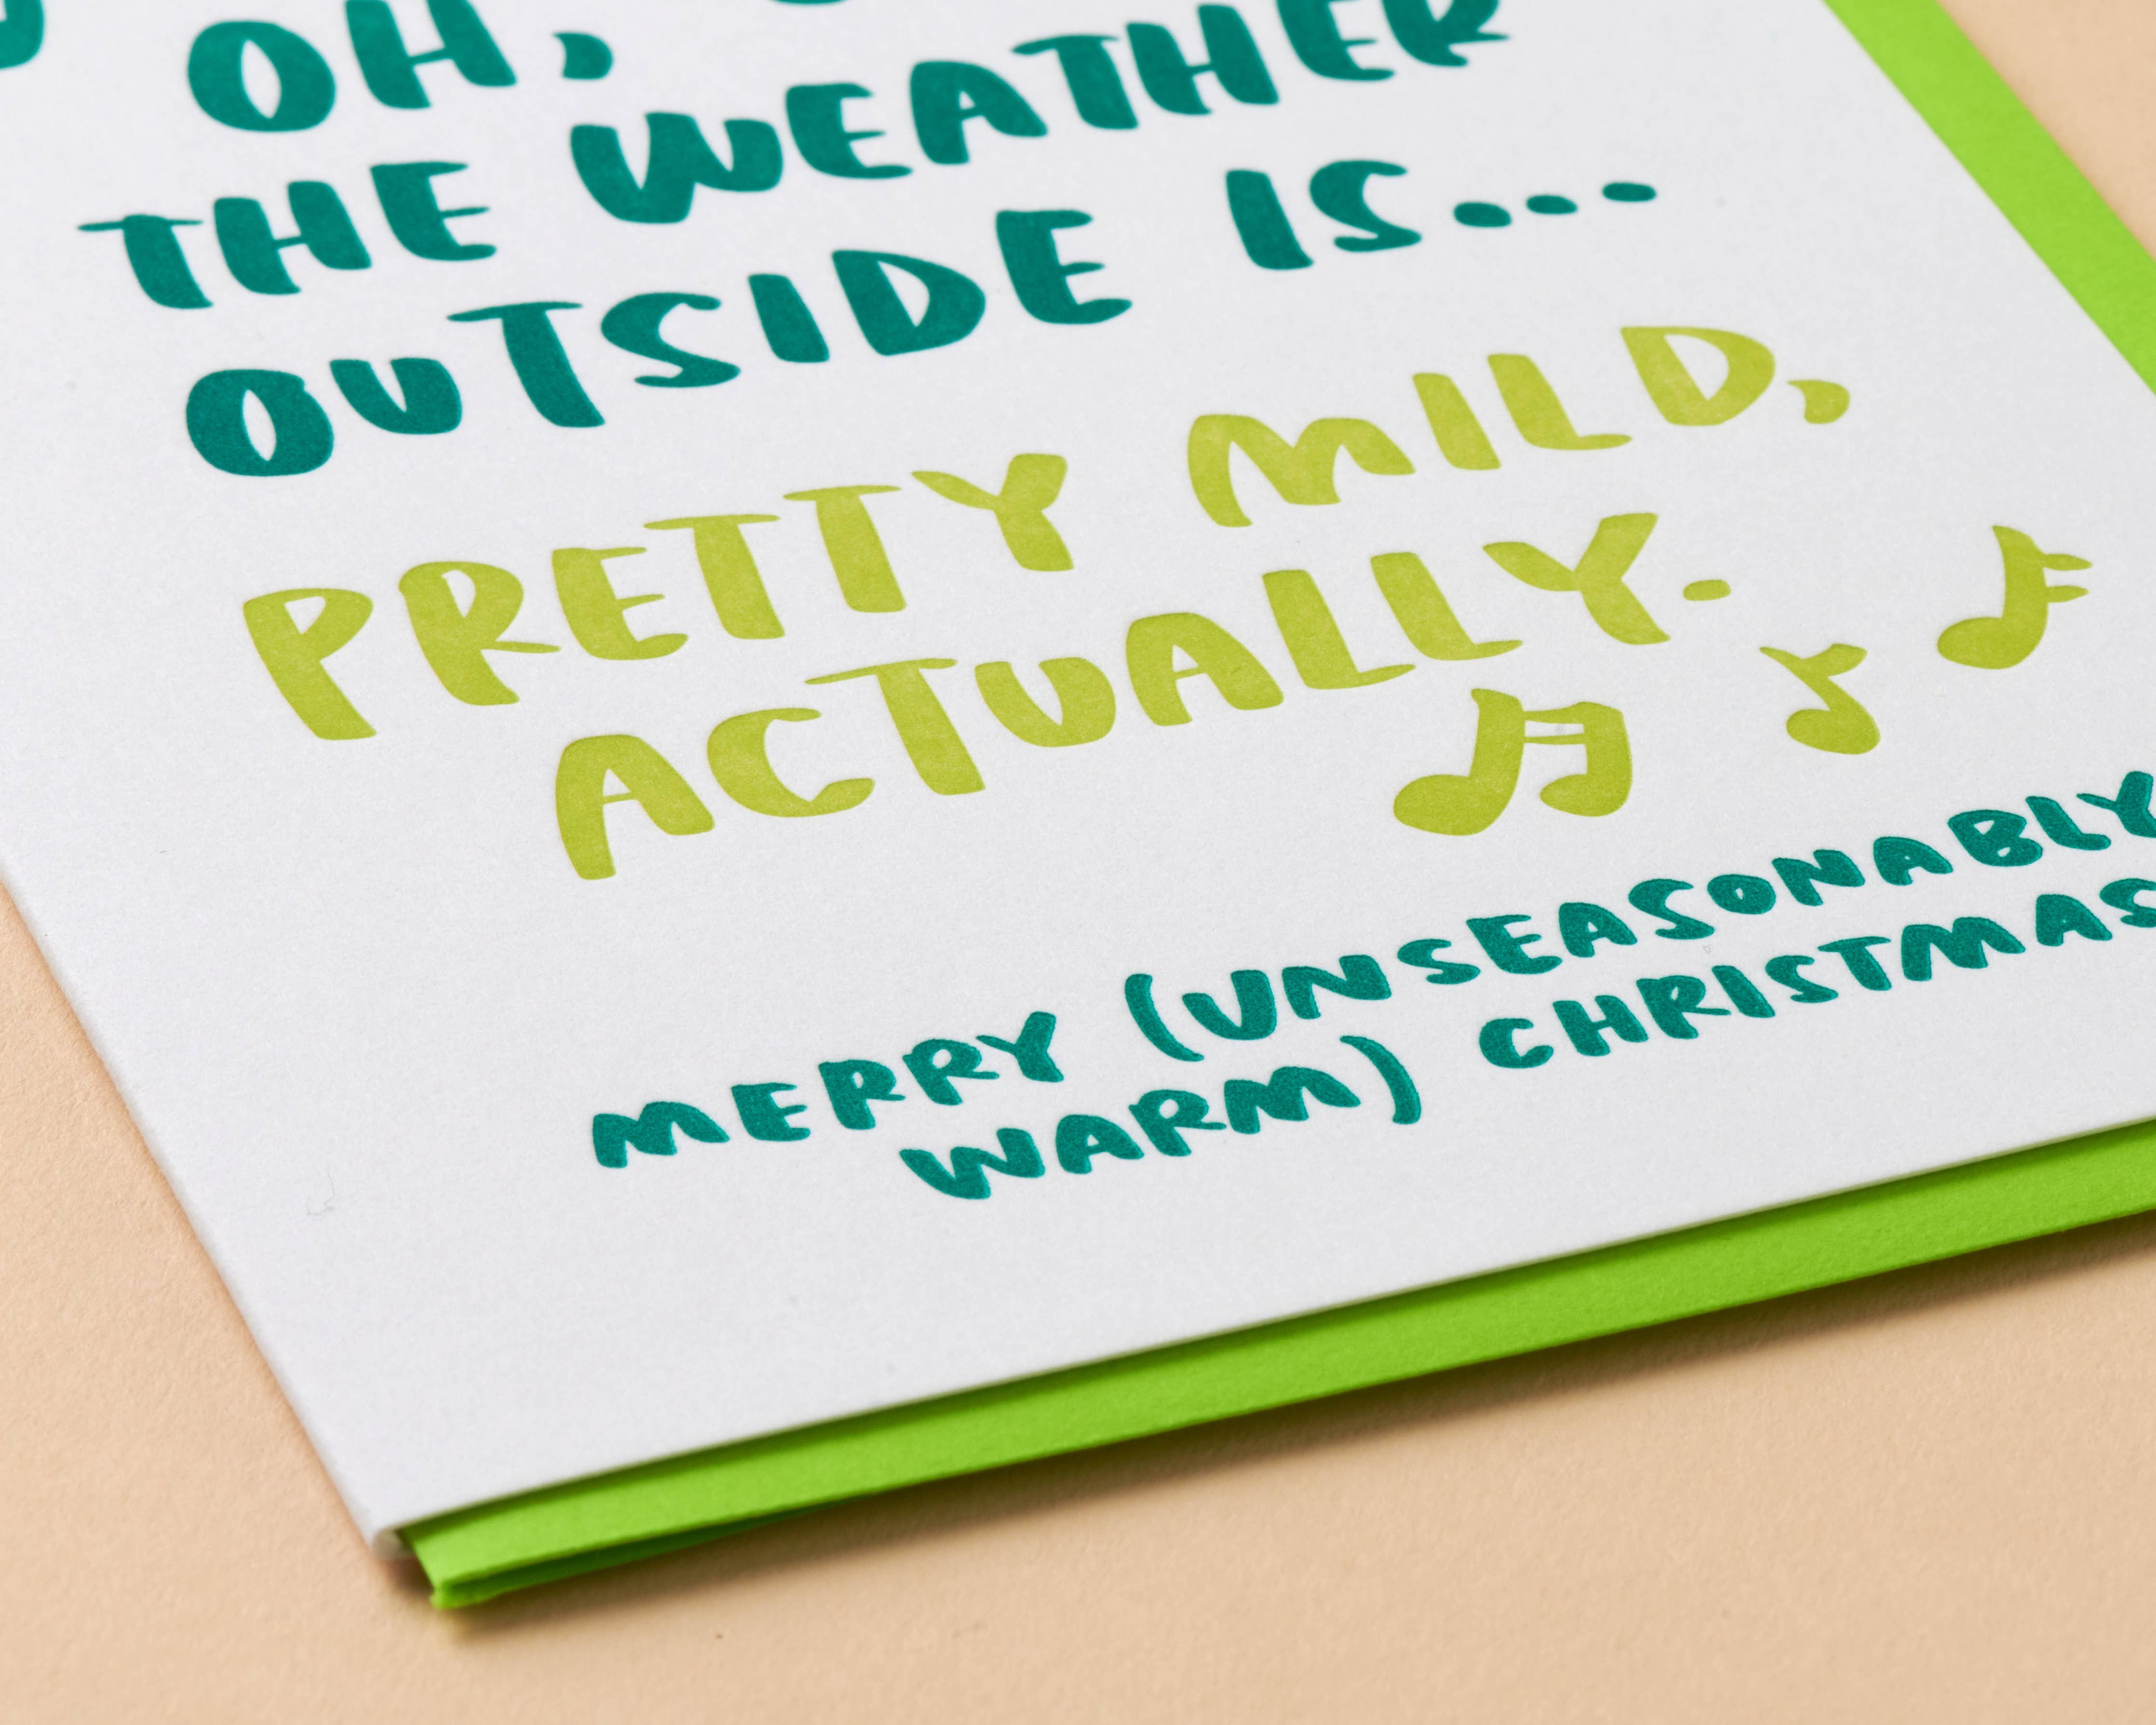 OH,
THE WEATHER
OUTSIDE IS...
PRETTY MILD,
ACTUALLY.
MERRY (UNSEASONABLY
WARM) CHRISTMAS